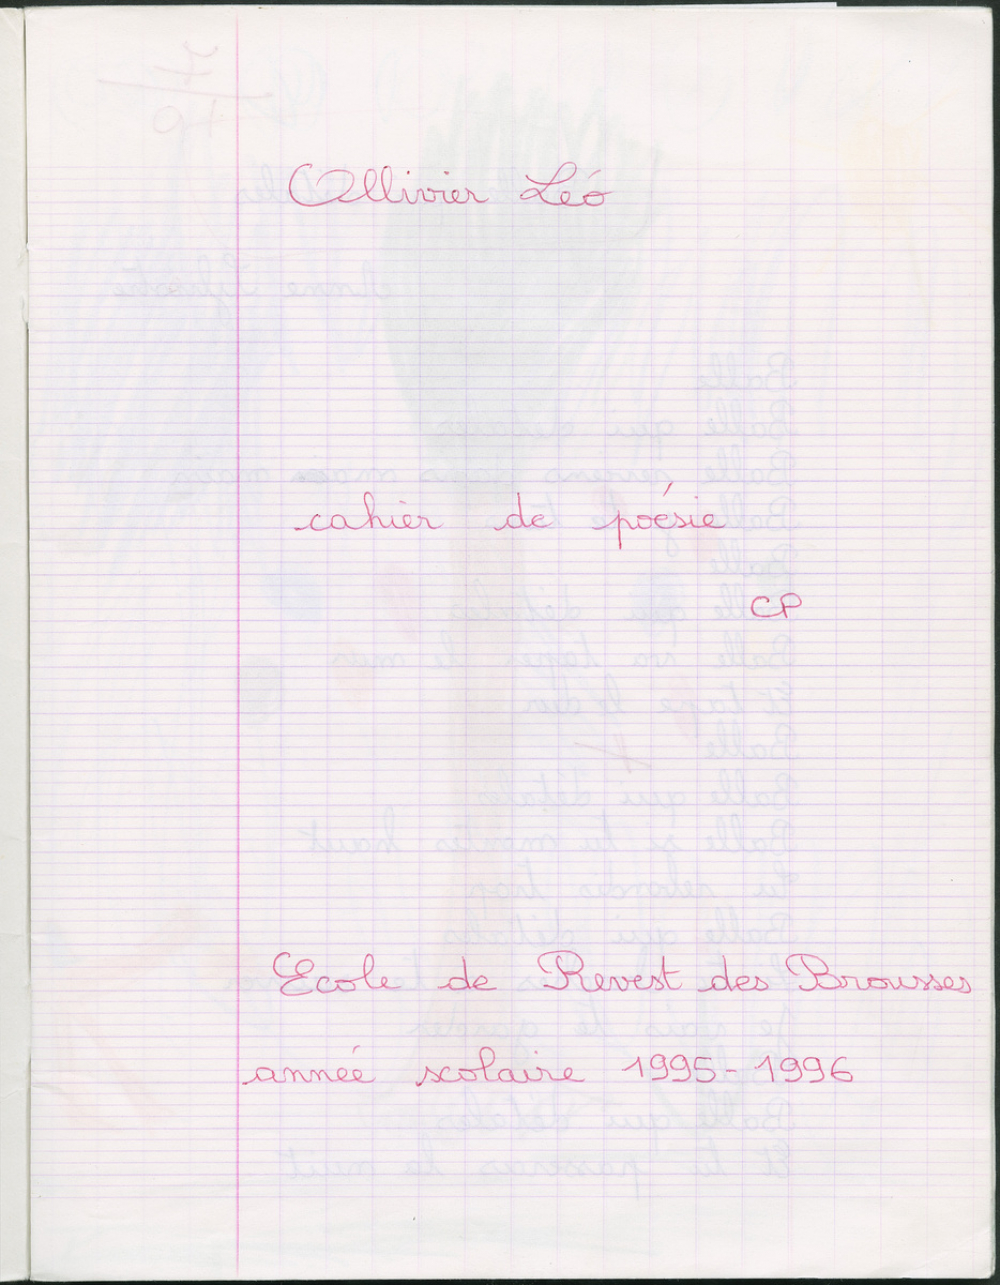 Ollivier Léo
cahier de poésie
CP
Ecole de Revest des Brousses
année scolaire 1995-1996